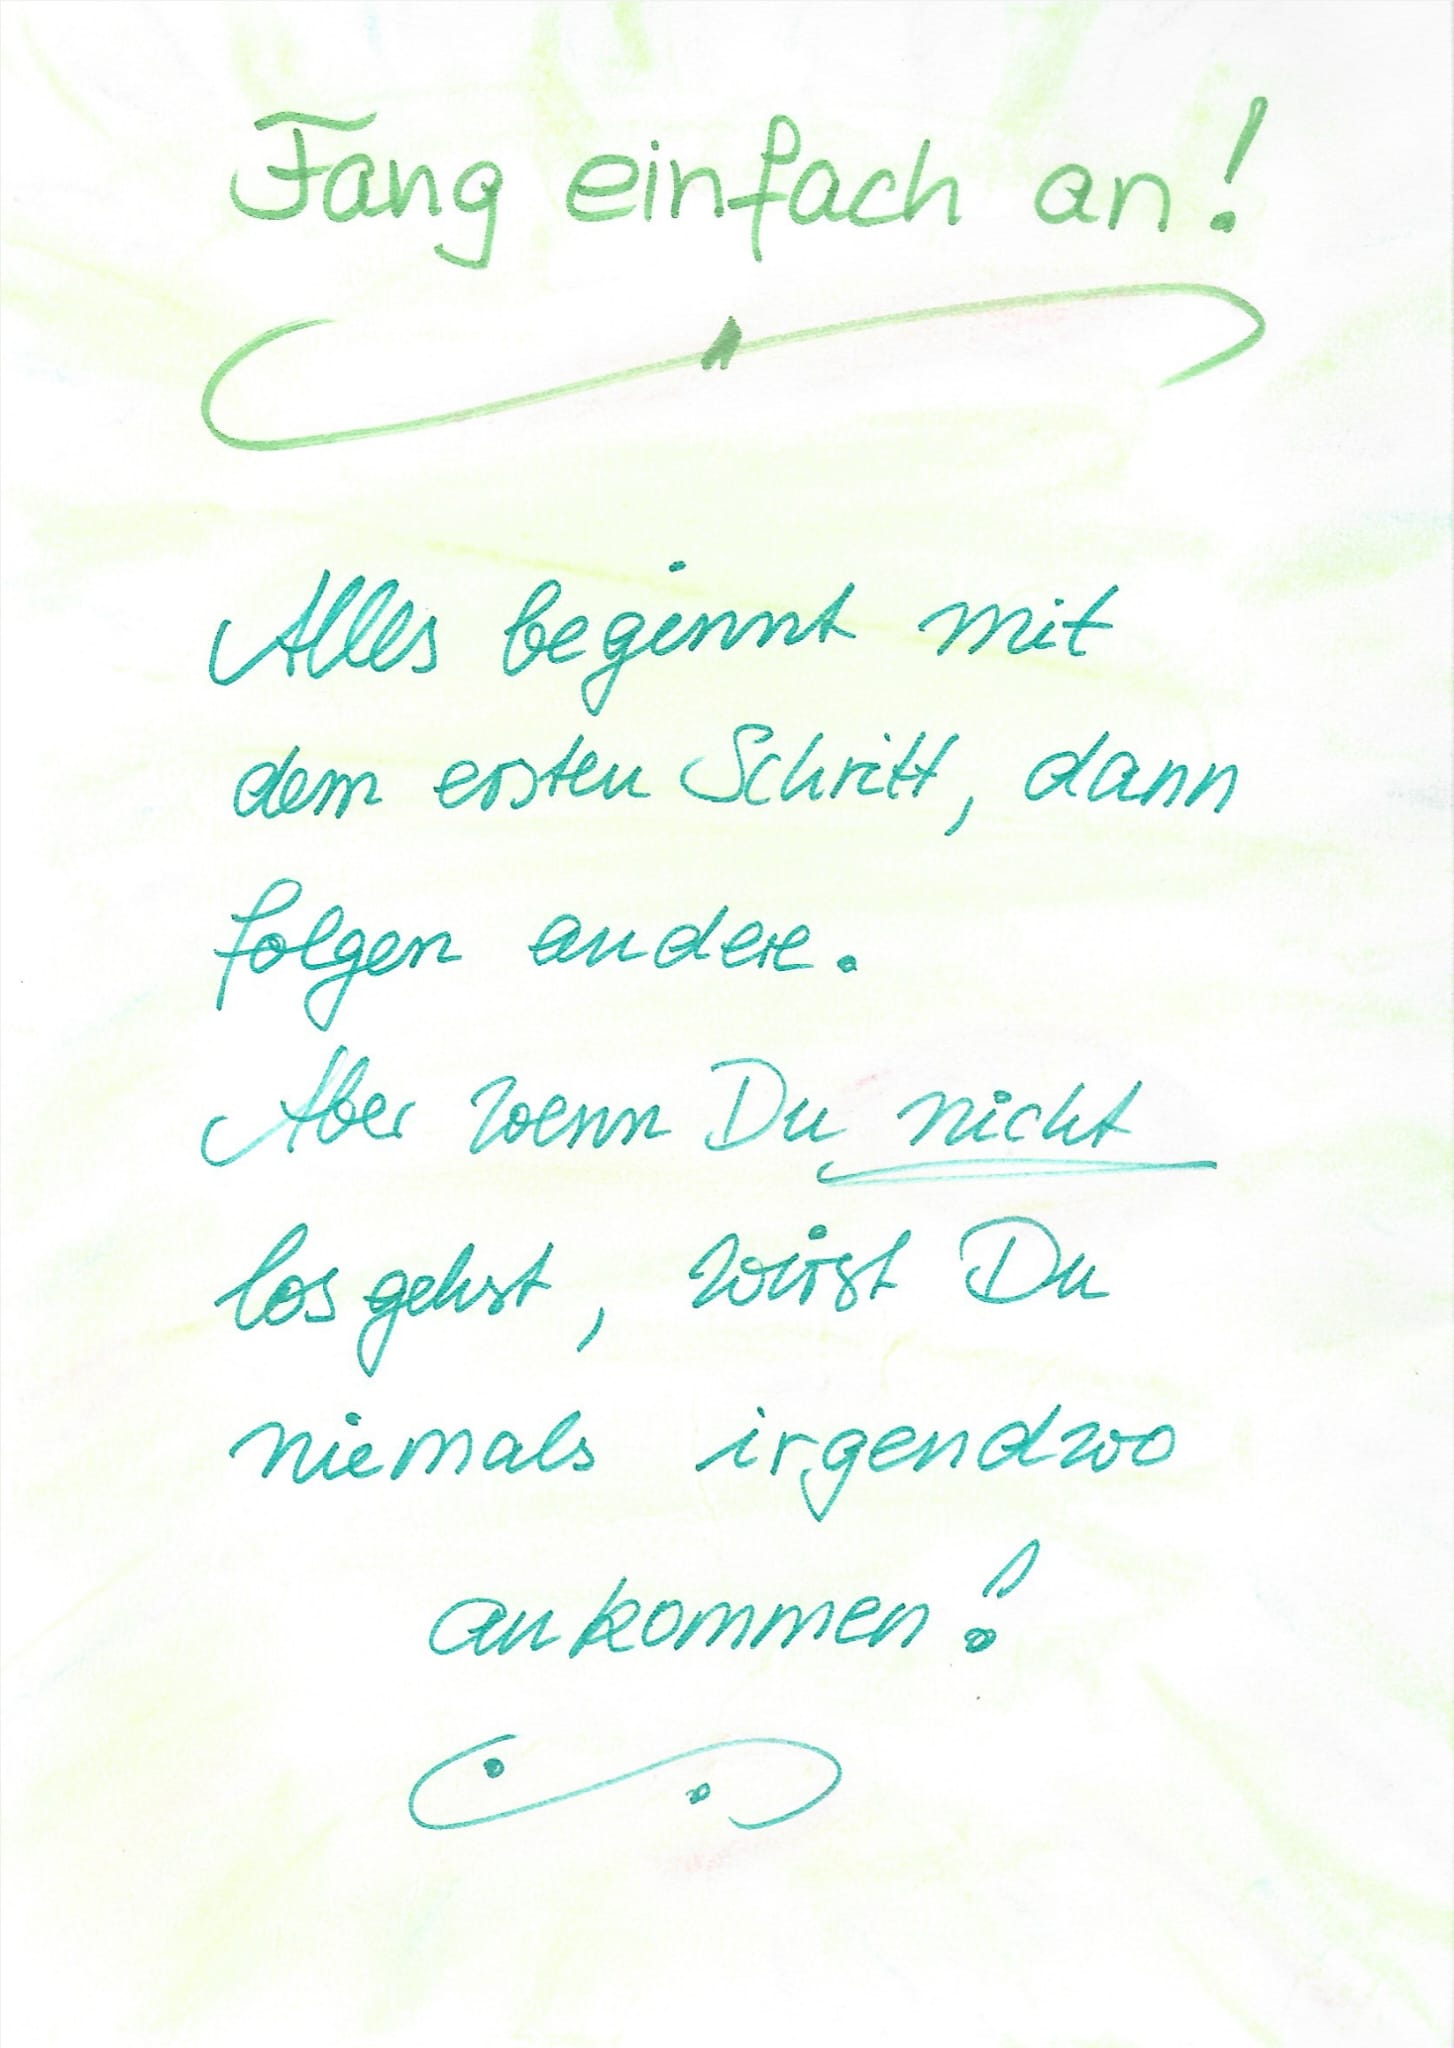 Fang einfach an!
Alles beginnt mit
dem ersten Schritt, dann
folgen andere.
Aber wenn Du nicht
losgehst, wirst Du
niemals irgendwo
ankommen!